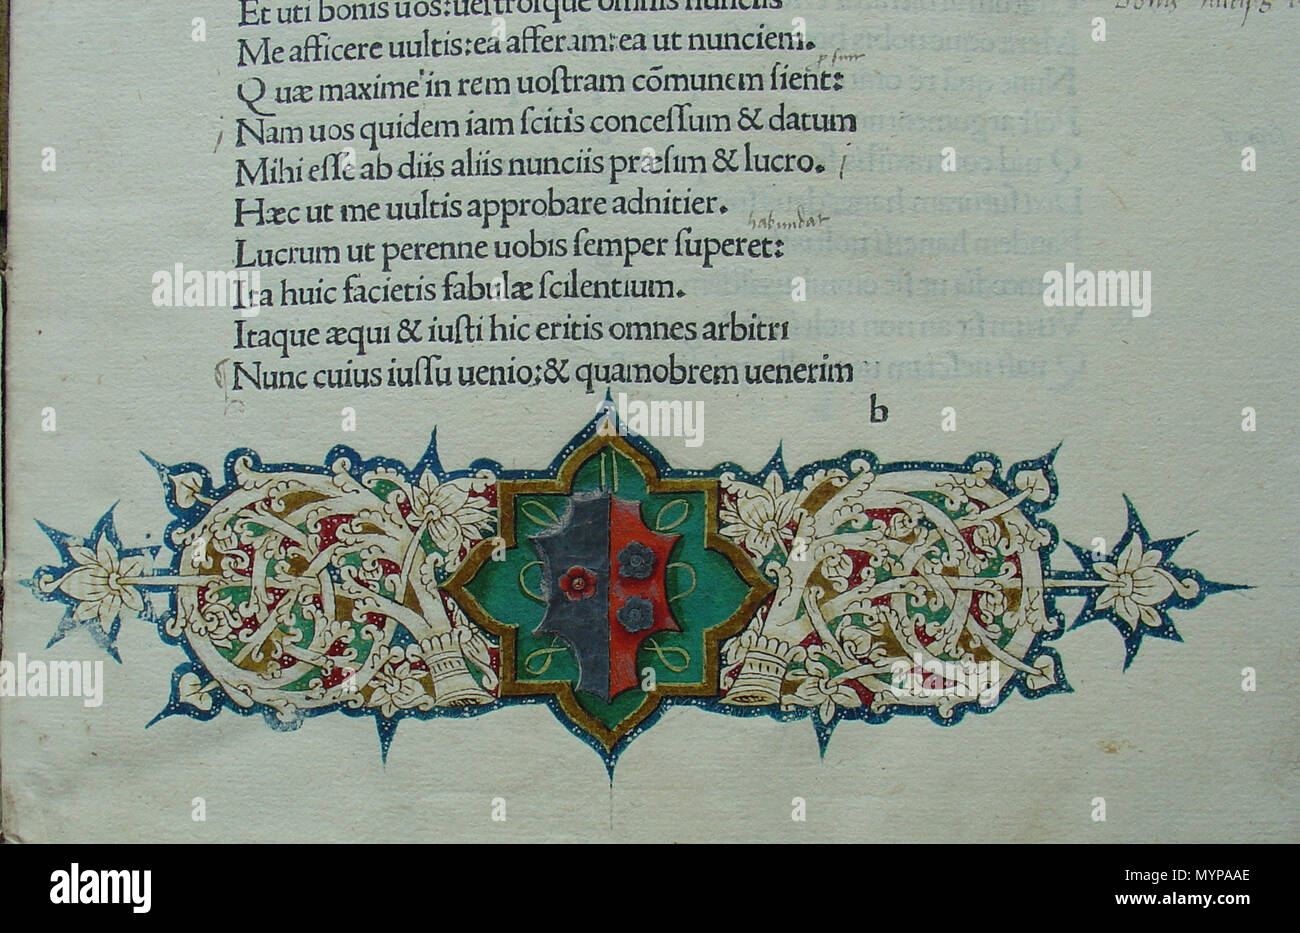 Et uti bonis uos:uestrosque omnis nunciis
Me afficere uultis:ea afferam:ea ut nunciem.
Quæ maxime in rem uoſtram cōmunem ſient:
Nam uos quidem iam ſcitis conceſſum & datum
Mihi eſſe ab diis aliis nunciis præſim & lucro.
Hæc ut me uultis approbare adnitier.
habundat
Lucrum ut perenne uobis ſemper ſuperet:
Ita huic facietis fabulæ ſcilentium.
Itaque æqui & iuſti hic eritis omnes arbitri
Nunc cuius iuſſu uenio:& quamobrem uenerim
b
alamy
alamy
Image ID: MYPAAE
www.alamy.com